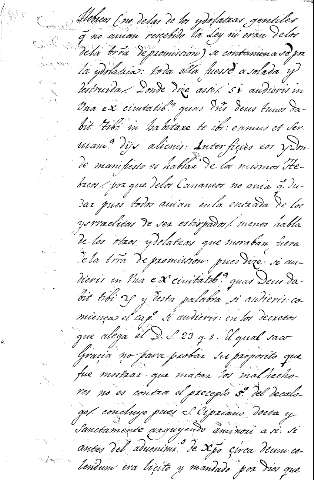 Hebreos (no de las de los ydolatras gentiles
q̃ no avian rescebido la ley ni eran delos
dela trr̃a de promission) se contaminase por
la ydolatria: toda ella fuesse asolada y
destruida. Donde dize assi. Si audieris in
Una ex civitatibꝰ quas dñs deus tuus da-
bit tibi in habitare
dijs alienis. Interficies eos y don-
de manifiesto es hablar de los mismos He-
breos, porque delos Cananeos no avia q̃ du-
dar pues todos avian en la entrada de los
ysrraelitas de ser estirpados, menos habla
de los otros ydolatras que moraban fuera
de la trr̃a de promission. pues dize: si au-
dieris in Una ex civitatibꝰ quas Deus da-
bit tibi. Y desta palabra si audieris: co-
miença el cap.º Si audieris: en los decretos
que alega el D. S. 23 q. 5. El qual saco
Graciano para probar su proposito que
fue mostrar que matar los malhecho-
res no es contra el precepto 5.º del decalo-
go/ concluyo pues S. Cipriano docta y
sanctamente arguyendo a minori a si. si
antes del advenimi.º de Xp̃o circa deum co-
lendum era licito y mandado por dios que